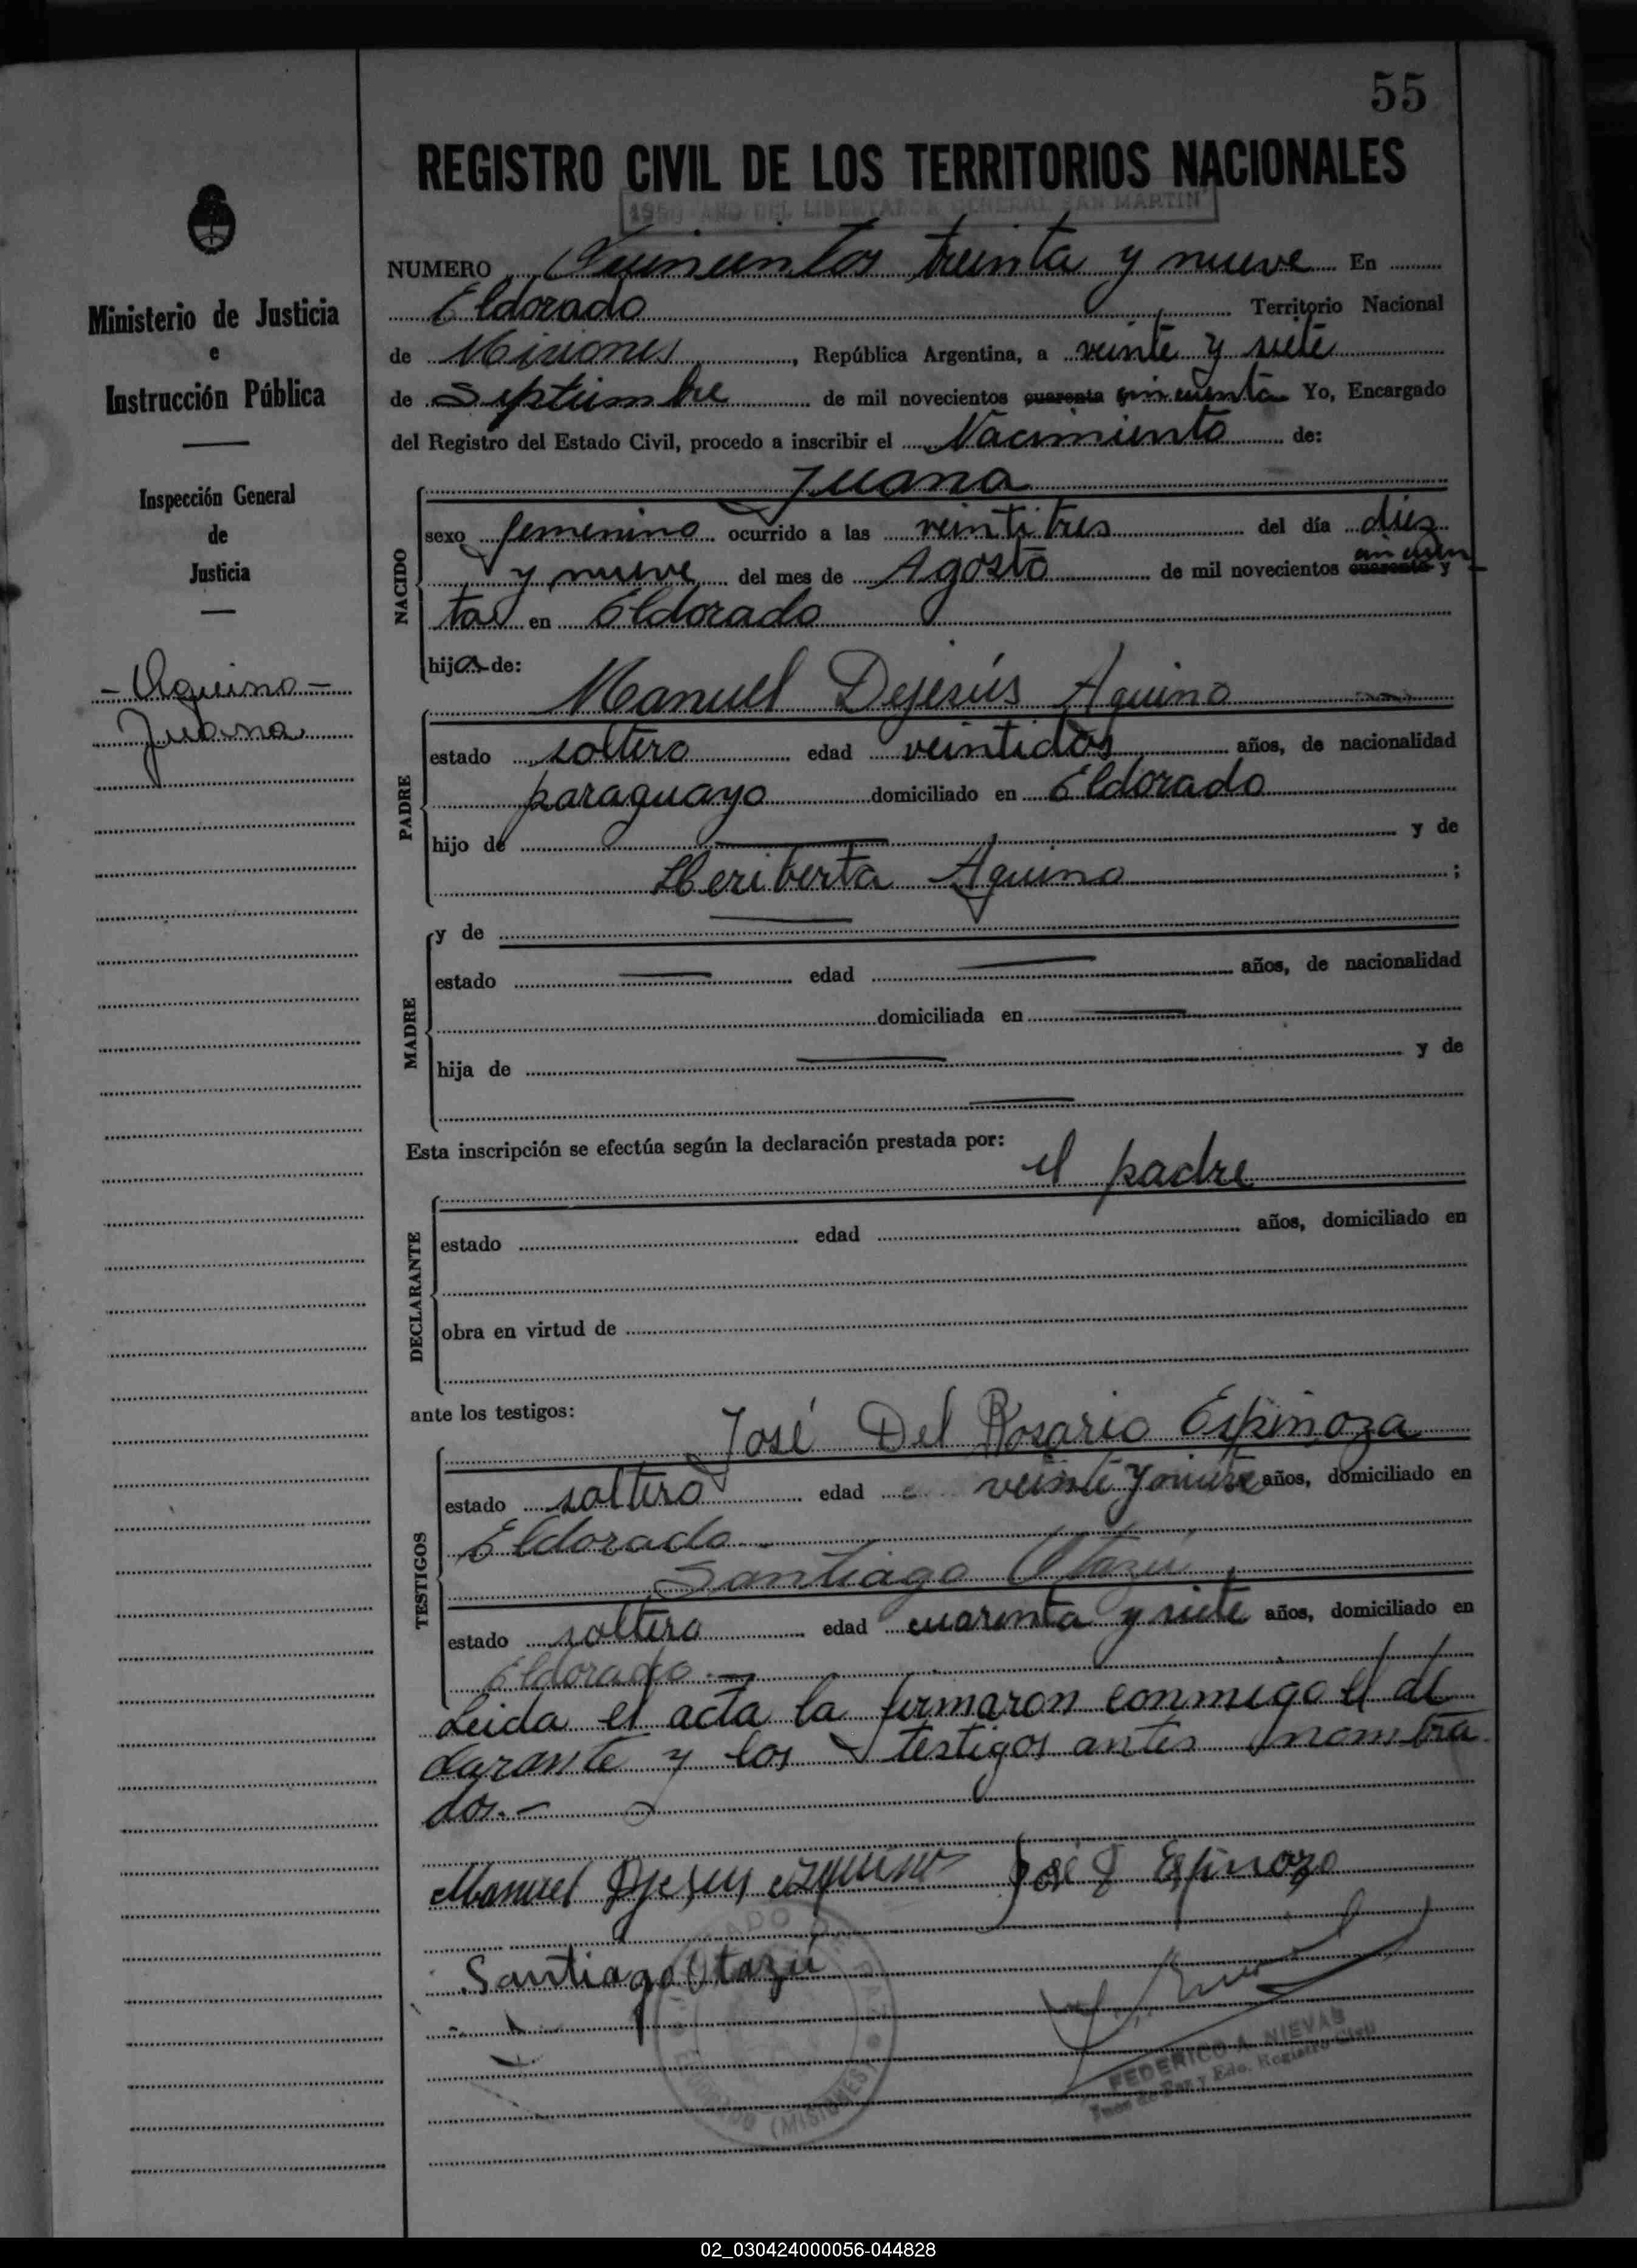 55
REGISTRO CIVIL DE LOS TERRITORIOS NACIONALES
1950 AÑO DEL LIBERTADOR GENERAL SAN MARTIN
Ministerio de Justicia
e
Instrucción Pública
Inspección General
de
Justicia
- Aquino -
Juana
NUMERO Quinientos treinta y nueve En
Eldorado Territorio Nacional
de Misiones, República Argentina, a veinte y siete
de Septiembre de mil novecientos cuarenta cincuenta Yo, Encargado
del Registro del Estado Civil, procedo a inscribir el Nacimiento de:
NACIDO
Juana
sexo femenino ocurrido a las veintitres del día diez
y nueve del mes de Agosto de mil novecientos cuarenta y cincuen
ta en Eldorado
hija de:
PADRE
Manuel Dejesús Aquino
estado soltero edad veintidós años, de nacionalidad
paraguayo domiciliado en Eldorado
hijo de y de
Heriberta Aquino ;
MADRE
y de
estado edad años, de nacionalidad
domiciliada en
hija de y de
Esta inscripción se efectúa según la declaración prestada por:
el padre
DECLARANTE
estado edad años, domiciliado en
obra en virtud de
ante los testigos:
TESTIGOS
José Del Rosario Espinoza
estado soltero edad veinte y años, domiciliado en
Eldorado
Santiago Otazu
estado soltero edad cuarenta y siete años, domiciliado en
Eldorado.-
Leida el acta la firmaron conmigo el de
clarante y los testigos antes nombra
dos.-
Manuel Dejesus Aquino José Espinoza
Santiago Otazú
FEDERICO A. NIEVAS
Juez de Paz y Edo. Registro Civil
(MISIONES)
02_030424000056-044828